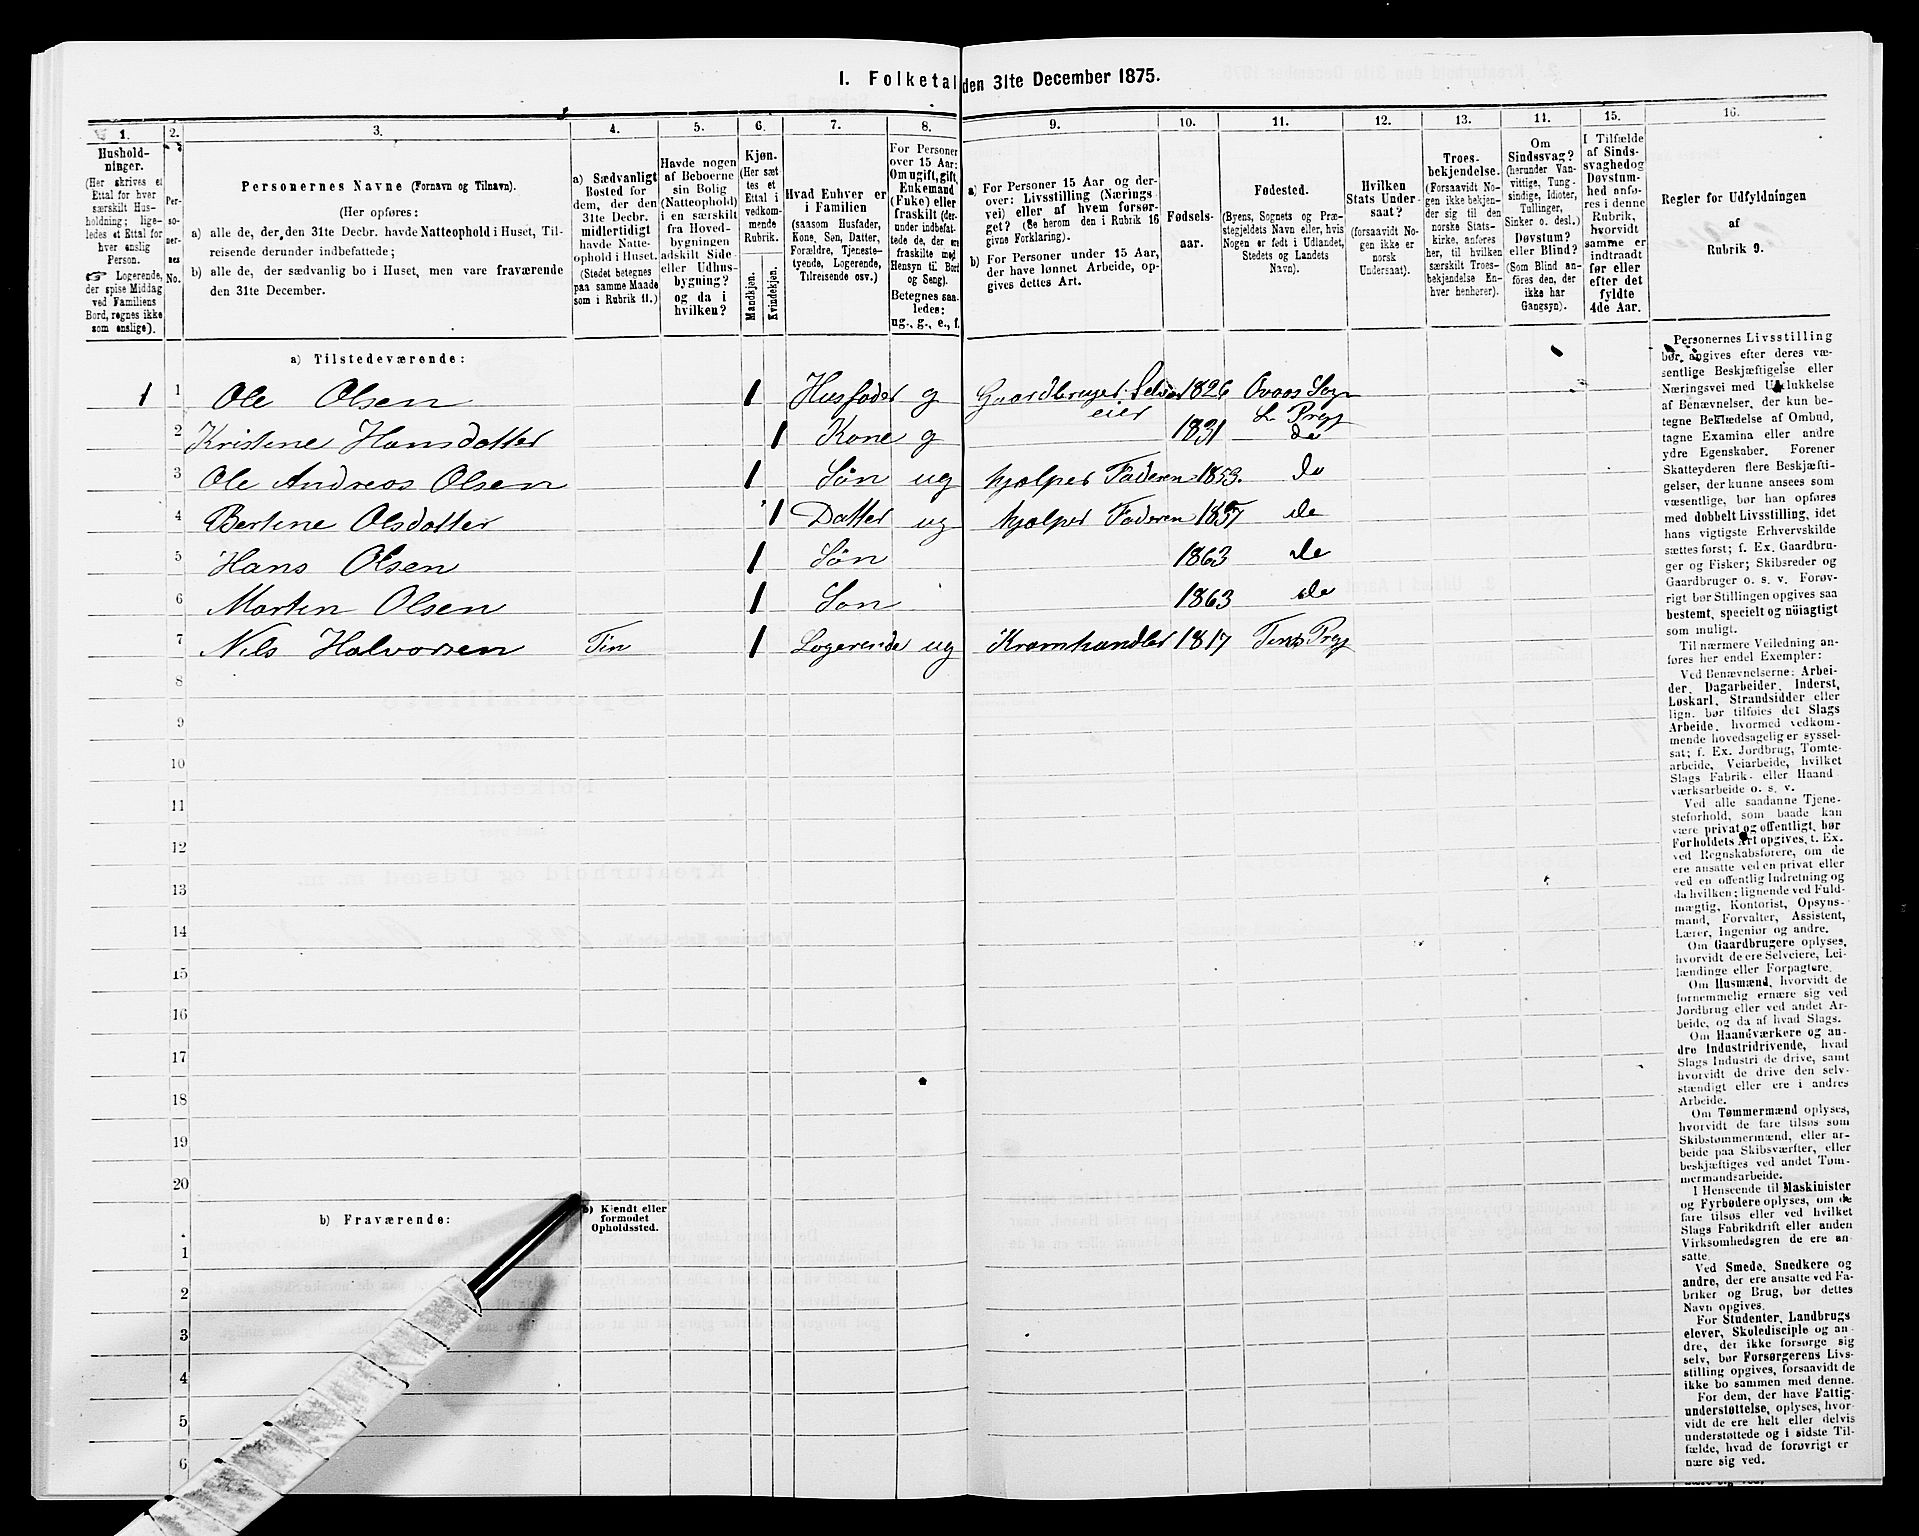 I. Folketal den 31te December 1875.
1. 2. 3. 4. 5. 6. 7. 8. 9. 10. 11. 12. 13. 14. 15. 16.
Hushold-
ninger.
(Her skrives et
Ettal for hver
særskilt Hus-
holdning; lige-
ledes et Ettal for
hver enslig
Person.
☞ Logerende,
der spise Middag
ved Familiens
Bord, regnes ikke
som enslige).
Per-
so-
ner-
nes
No.
Personernes Navne (Fornavn og Tilnavn).
(Her opføres:
a) alle de, der den 31te Decbr. havde Natteophold i Huset, Til-
reisende derunder indbefattede;
b) alle de, der sædvanlig bo i Huset, men vare fraværende
den 31te December.
a) Sædvanligt
Bosted for
dem, der den
31te Decbr.
midlertidigt
havde Natte-
ophold i Huset.
(Stedet betegnes
paa samme Maade
som i Rubrik 11.)
Havde nogen
af Beboerne
sin Bolig
(Natteophold)
i en særskilt
fra Hoved-
bygningen
adskilt Side-
eller Udhus-
bygning?
og da i
hvilken?
Kjøn.
(Her sæt-
tes et
Ettal i
vedkom-
mende
Rubrik.
Mandkjøn.
Kvindekjøn.
Hvad Enhver er
i Familien
(saasom Husfader,
Kone, Søn, Datter,
Forældre, Tjeneste-
tyende, Logerende,
Tilreisende osv.)
For Personer
over 15 Aar:
Om ugift, gift,
Enkemand
(Fuke) eller
fraskilt (der-
under indbefat-
tede de, der ere
fraskilte med
Hensyn til Bord
og Seng).
Betegnes saa-
ledes:
ug., g., e., f.
a) For Personer 15 Aar og der-
over: Livsstilling (Nærings-
vei) eller af hvem forsør-
get? (Se herom den i Rubrik 16
givne Forklaring).
b) For Personer under 15 Aar,
der have lønnet Arbeide, op-
gives dettes Art.
Fødsels-
aar.
Fødested.
(Byens, Sognets og Præ-
stegjeldets Navn eller, hvis
Nogen er født i Udlandet,
Stedets og Landets
Navn).
Hvilken
Stats Under-
saat?
(forsaavidt No-
gen ikke er
norsk
Undersaat).
Troes-
bekjendelse.
(Forsaavidt No-
gen ikke bekjen-
der sig til den
norske Stats-
kirke, anføres
her, til hvilken
særskilt Troes-
bekjendelse En-
hver henhører).
Om
Sindssvag?
(herunder Van-
vittige, Tung-
sindige, Idioter,
Tullinger,
Sinker o. desl.)
Døvstum?
eller Blind?
(Som Blind an-
føres den, der
ikke har
Gangsyn).
I Tilfælde
af Sinds-
svaghed og
Døvstum-
hed anfø-
res i denne
Rubrik,
hvorvidt
samme er
indtraadt
før eller
efter det
fyldte
4de Aar.
Regler for Udfyldningen
af
Rubrik 9.
a) Tilstedeværende:
1 1 Ole Olsen 1 Husfader g Gaardbruger Selv- 1826 Ovaas Sogn
eier L. Prgj
2 Kristine Hansdatter 1 Kone g 1831 do
3 Ole Andreas Olsen 1 Søn ug hjælper Faderen 1853. do
4 Bertine Olsdatter 1 Datter ug hjælper Faderen 1857 do
5 Hans Olsen 1 Søn 1863 do
6 Martin Olsen 1 Søn 1863 do
7 Nils Halvorsen Tin 1 Logerende ug Kramhandler 1817 Tins Prgj
8
9
10
11
12
13
14
15
16
17
18
19
20
b) Fraværende:
b) Kjendt eller
formodet
Opholdssted.
1
2
3
4
5
6
Personernes Livsstilling
bør angives efter deres væ-
sentlige Beskjæftigelse eller
Næringsvei med Udelukkelse
af Benævnelser, der kun be-
tegne Beklædelse af Ombud,
tagne Examina eller andre
ydre Egenskaber. Forener
Skatteyderen flere Beskjæfti-
gelser, der kunne ansees som
væsentlige, bør han opføres
med dobbelt Livsstilling, idet
hans vigtigste Erhvervskilde
sættes først; f. Ex. Gaardbru-
ger og Fisker; Skibsreder og
Gaardbruger o. s. v. Forøv-
rigt bør Stillingen opgives saa
bestemt, specielt og nöiagtigt
som muligt.
Til nærmere Veiledning an-
føres her endel Exempler:
Ved Benævnelserne: Arbei-
der, Dagarbeider, Inderst,
Løskarl, Strandsidder eller
lign. bør tilføies det Slags
Arbeide, hvormed vedkom-
mende hovedsagelig er syssel-
sat; f. Ex. Jordbrug, Tomte-
arbeide, Veiarbeide, hvilket
Slags Fabrik- eller Haand
værksarbeide o. s. v.
Ved alle saadanne Tjene-
steforhold, som baade kan
være privat og offentligt, bør
Forholdets Art opgives, t. Ex.
ved Regnskabsførere, om de
ere ansatte ved en privat eller
ved en offentlig Indretning og
da hvilken; lignende ved Fuld-
mægtig, Kontorist, Opsyns-
mand, Forvalter, Assistent,
Lærer, Ingeniør og andre.
Om Gaardbrugere oplyses,
hvorvidt de ere Selveiere, Lei-
lændinge eller Forpagtere.
Om Husmænd, hvorvidt de
fornemmelig ernære sig ved
Jordbrug eller ved andet Ar-
beide, og da af hvad Slags.
Om Haandværkere og an-
dre Industridrivende, hvad
Slags Industri de drive, samt
hvorvidt de drive den selv-
stændigt eller ere i andres
Arbeide.
Om Tømmermænd oplyses,
hvorvidt de fare tilsøs som
Skibstømmermænd, eller ar-
beide paa Skibsværfter, eller
beskjæftiges ved andet Tøm-
mermandsarbeide.
I Henseende til Maskinister
og Fyrbødere oplyses, om de
fare tilsøs eller ved hvilket
Slags Fabrikdrift eller anden
Virksomhedsgren de ere an-
satte.
Ved Smede, Snedkere og
andre, der ere ansatte ved Fa-
briker og Brug, bør dettes
Navn opgives.
For Studenter, Landbrugs
elever, Skoledisciple og an-
dre, der ikke forsørge sig
selv, bør Forsørgerens Livs-
stilling opgives, forsaavidt de
ikke bo sammen med denne.
For dem, der have Fattig-
understøttelse, oplyses, hvor-
vidt de ere helt eller delvis
understøttede og i sidste Til-
fælde, hvad de forøvrigt er
nære sig ved.